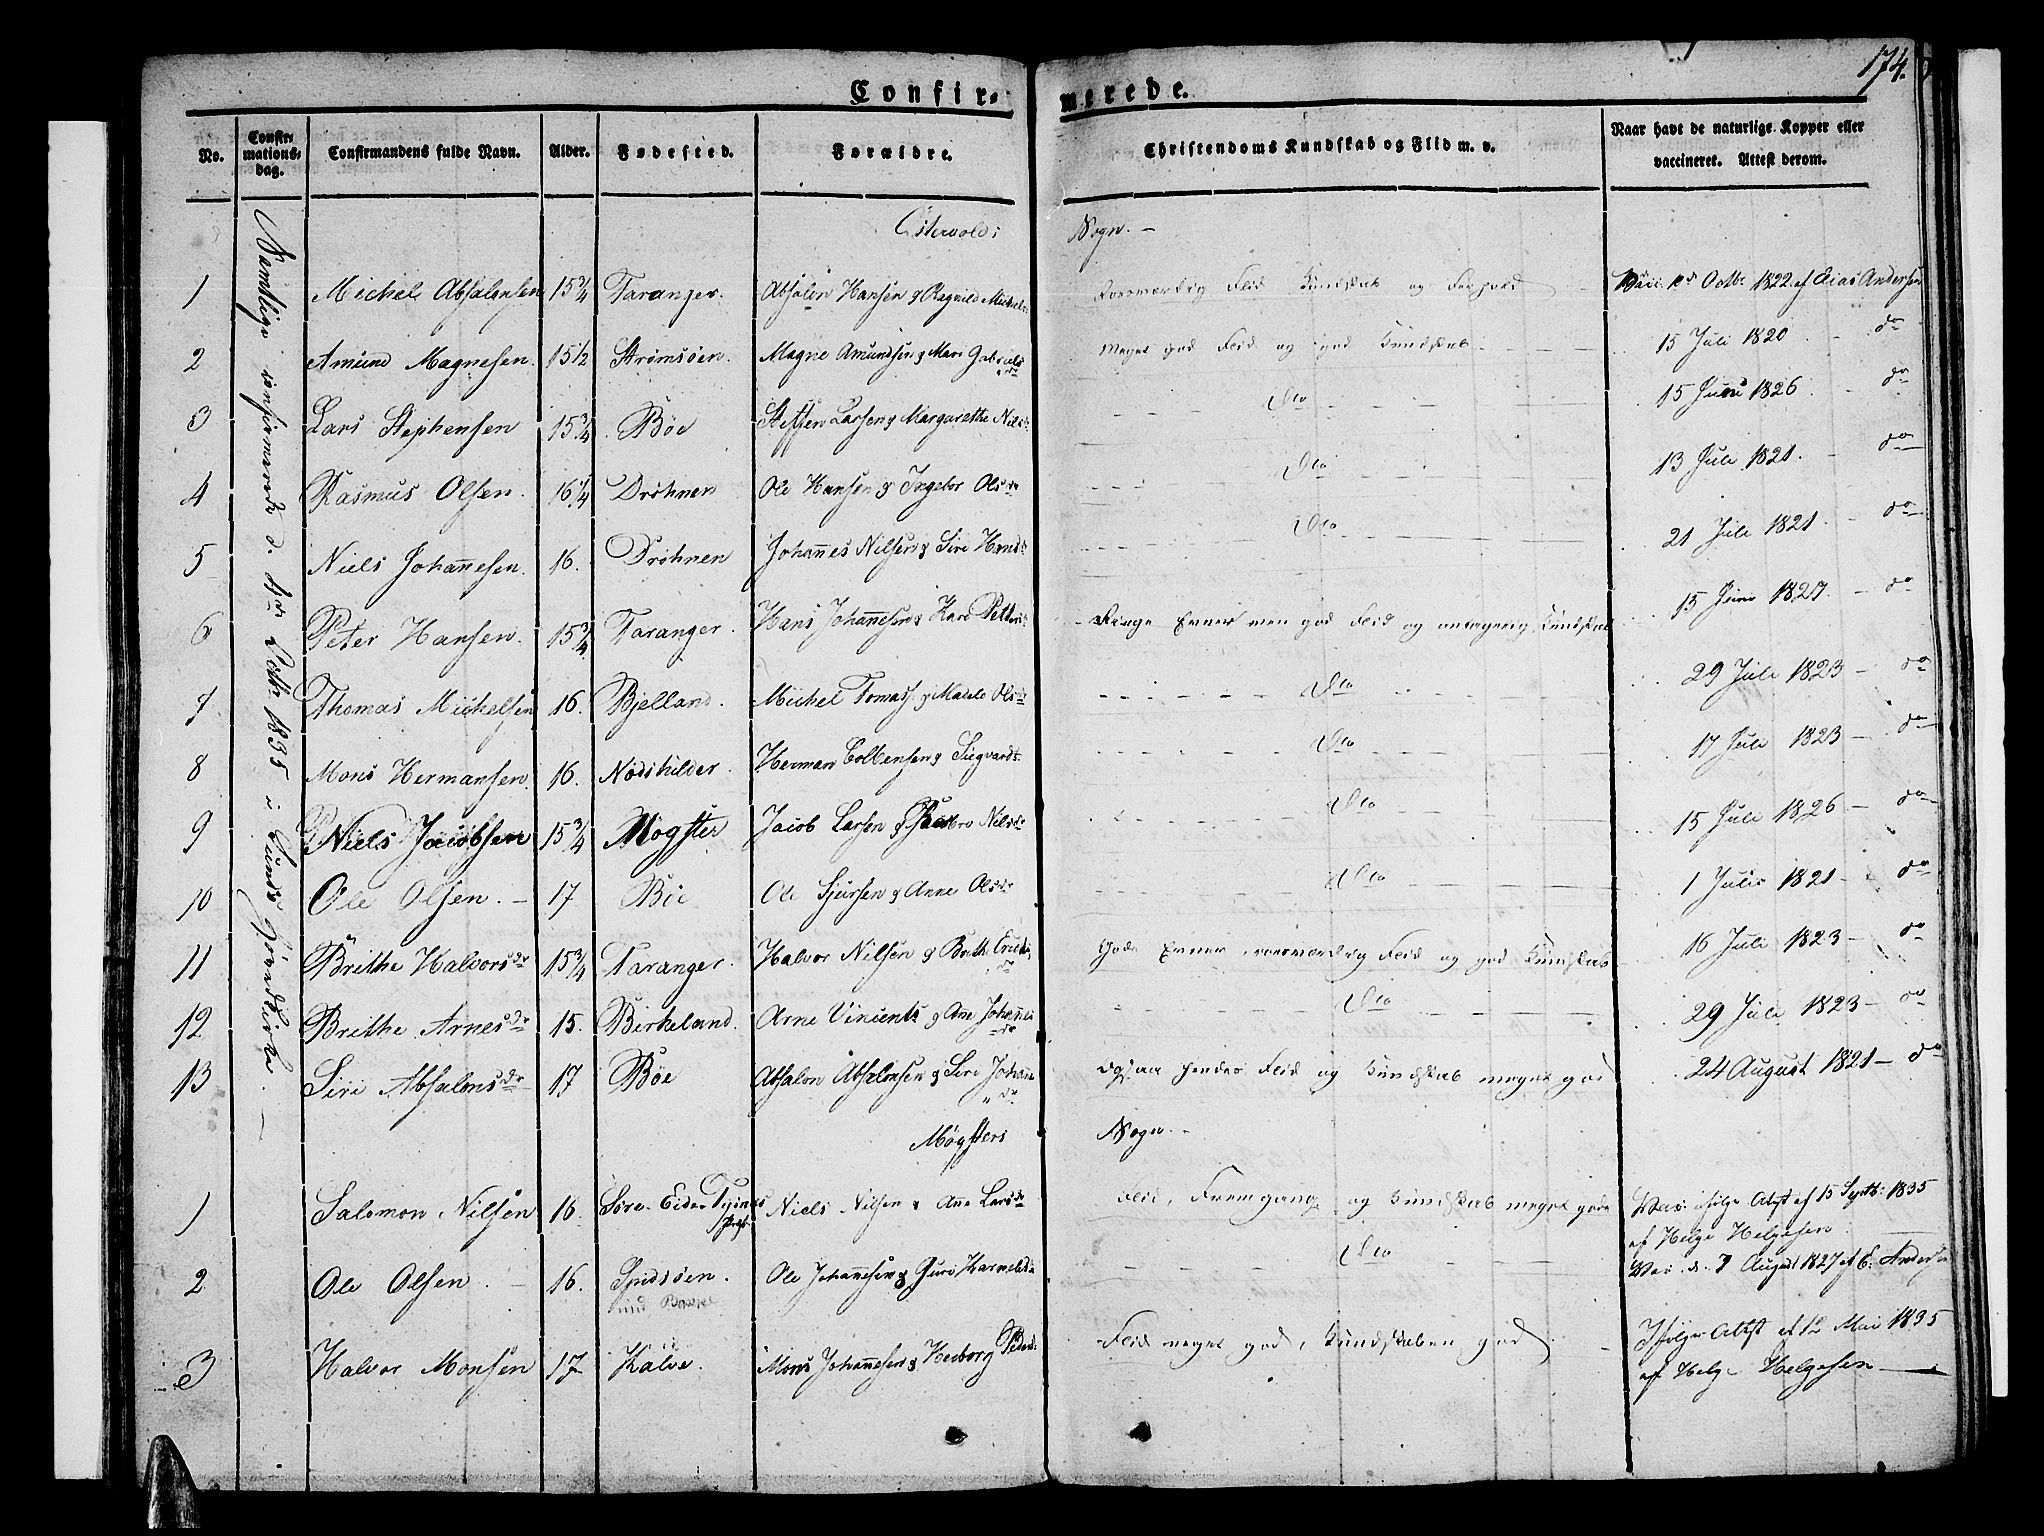 174.
Confirmerede.
No. Confirmations-dag. Confirmandens fulde Navn. Alder. Fødested. Forældre. Christendoms Kundskab og Flid m. v. Naar havt de naturlige Kopper eller vaccineret. Attest derom.
Samtlige confirmerede d. 4de Octbr 1835 i Sunds Hovedkirke. —
Østervolds Sogn. —
1 Michel Absalonsen 15 3/4 Taranger. Absalon Hansen & Ragnilde Michels Roesværdig Flid Kundskab og Forhold Octbr 1822 af Elias Andersen
2 Amund Magnesen. 15 1/2 Strømsøen. Magne Amundsen & Mari Gabriels dr Meget god Flid og god Kundskab 15 Juli 1820 do
3 Lars Stephensen 15 3/4 Bøe Steffen Larsen & Margarethe Nilsd. Dto 15 Juni 1826 do
4 Rasmus Olsen. 16 1/4 Drøhnen Ole Hansen & Ingebor Olsdr Dto 13 Juli 1821. do
5 Niels Johannesen. 16. Drøhnen Johannes Nilsen & Siri Hansd Dto 21 Juli 1821 do
6 Peter Hansen. 15 3/4 Taranger. Hans Johannesen & Kari Petters Ringe Evner men god Flid og antagelig Kundskab 15 Juni 1827. do
7 Thomas Michelsen 16. Bjelland. Michel Tomass & Madele Olsdr Dto 29 Juli 1823 do
8 Mons Hermansen. 16. Nødshilder. Herman Colbensen & Siegvards. Dto 17 Juli 1823 do
9 Niels Jacobsen 15 3/4 Møgster Jacob Larsen & Nilsdr Dto 15 Juli 1826 do
10 Ole Olsen. — 17 Bøe Ole Sjursen & Anne Olsdr Dto 1 Julii 1821 do
11 Brithe Halvorsdr 15 3/4 Taranger. Halvor Nilsen & Brithe Ericks dr Gode Evner, roesværdig Flid og god Kundskab 16 Juli 1823 do
12 Brithe Arnesdr 15. Birkeland. Arne Vincents & Ane Johannes dr Dto 29 Juli 1823 do
13 Siri Absalonsdr 17 Bøe Absalon Absalonsen & Siri Johanne dr Ogsaa hendes Flid og Kundskab meget god 24 August 1821 do
Møgsters Sogn. —
1 Salomon Nilsen 16. Søre Eide Præst. Niels Nilsen & Ane Larsdr Flid, Fremgang og Kundskab meget gode Vac: ifølge Attst af 15 Septb: 1835
af Helge Helgesen
2 Ole Olsen. — 16. Spidsøen. Ole Johannesen & Guro Karmelsdr Dto Vac. d. 7 August 1827 af E. Andersen
3 Halvor Monsen 17 Kalve. Mons Johannesen & Herborg Peders Flid meget god, Kundskaben god Ifølge Attst af 12 Mai 1835
af Helge Helgesen